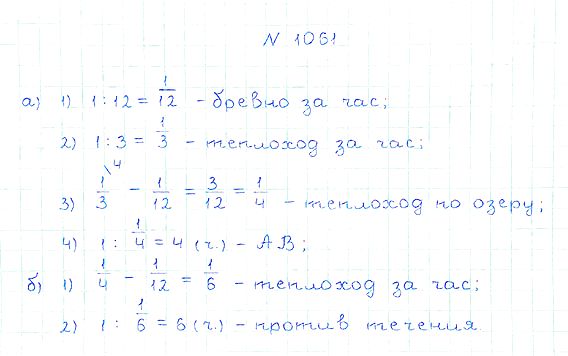 N 1061
а) 1) 1 : 12 = 1/12 - бревно за час;
2) 1 : 3 = 1/3 - теплоход за час;
3) 1/3 \4 - 1/12 = 3/12 = 1/4 - теплоход по озеру;
4) 1 : 1/4 = 4 (ч.) - АВ;
б) 1) 1/4 - 1/12 = 1/6 - теплоход за час;
2) 1 : 1/6 = 6 (ч.) - против течения.